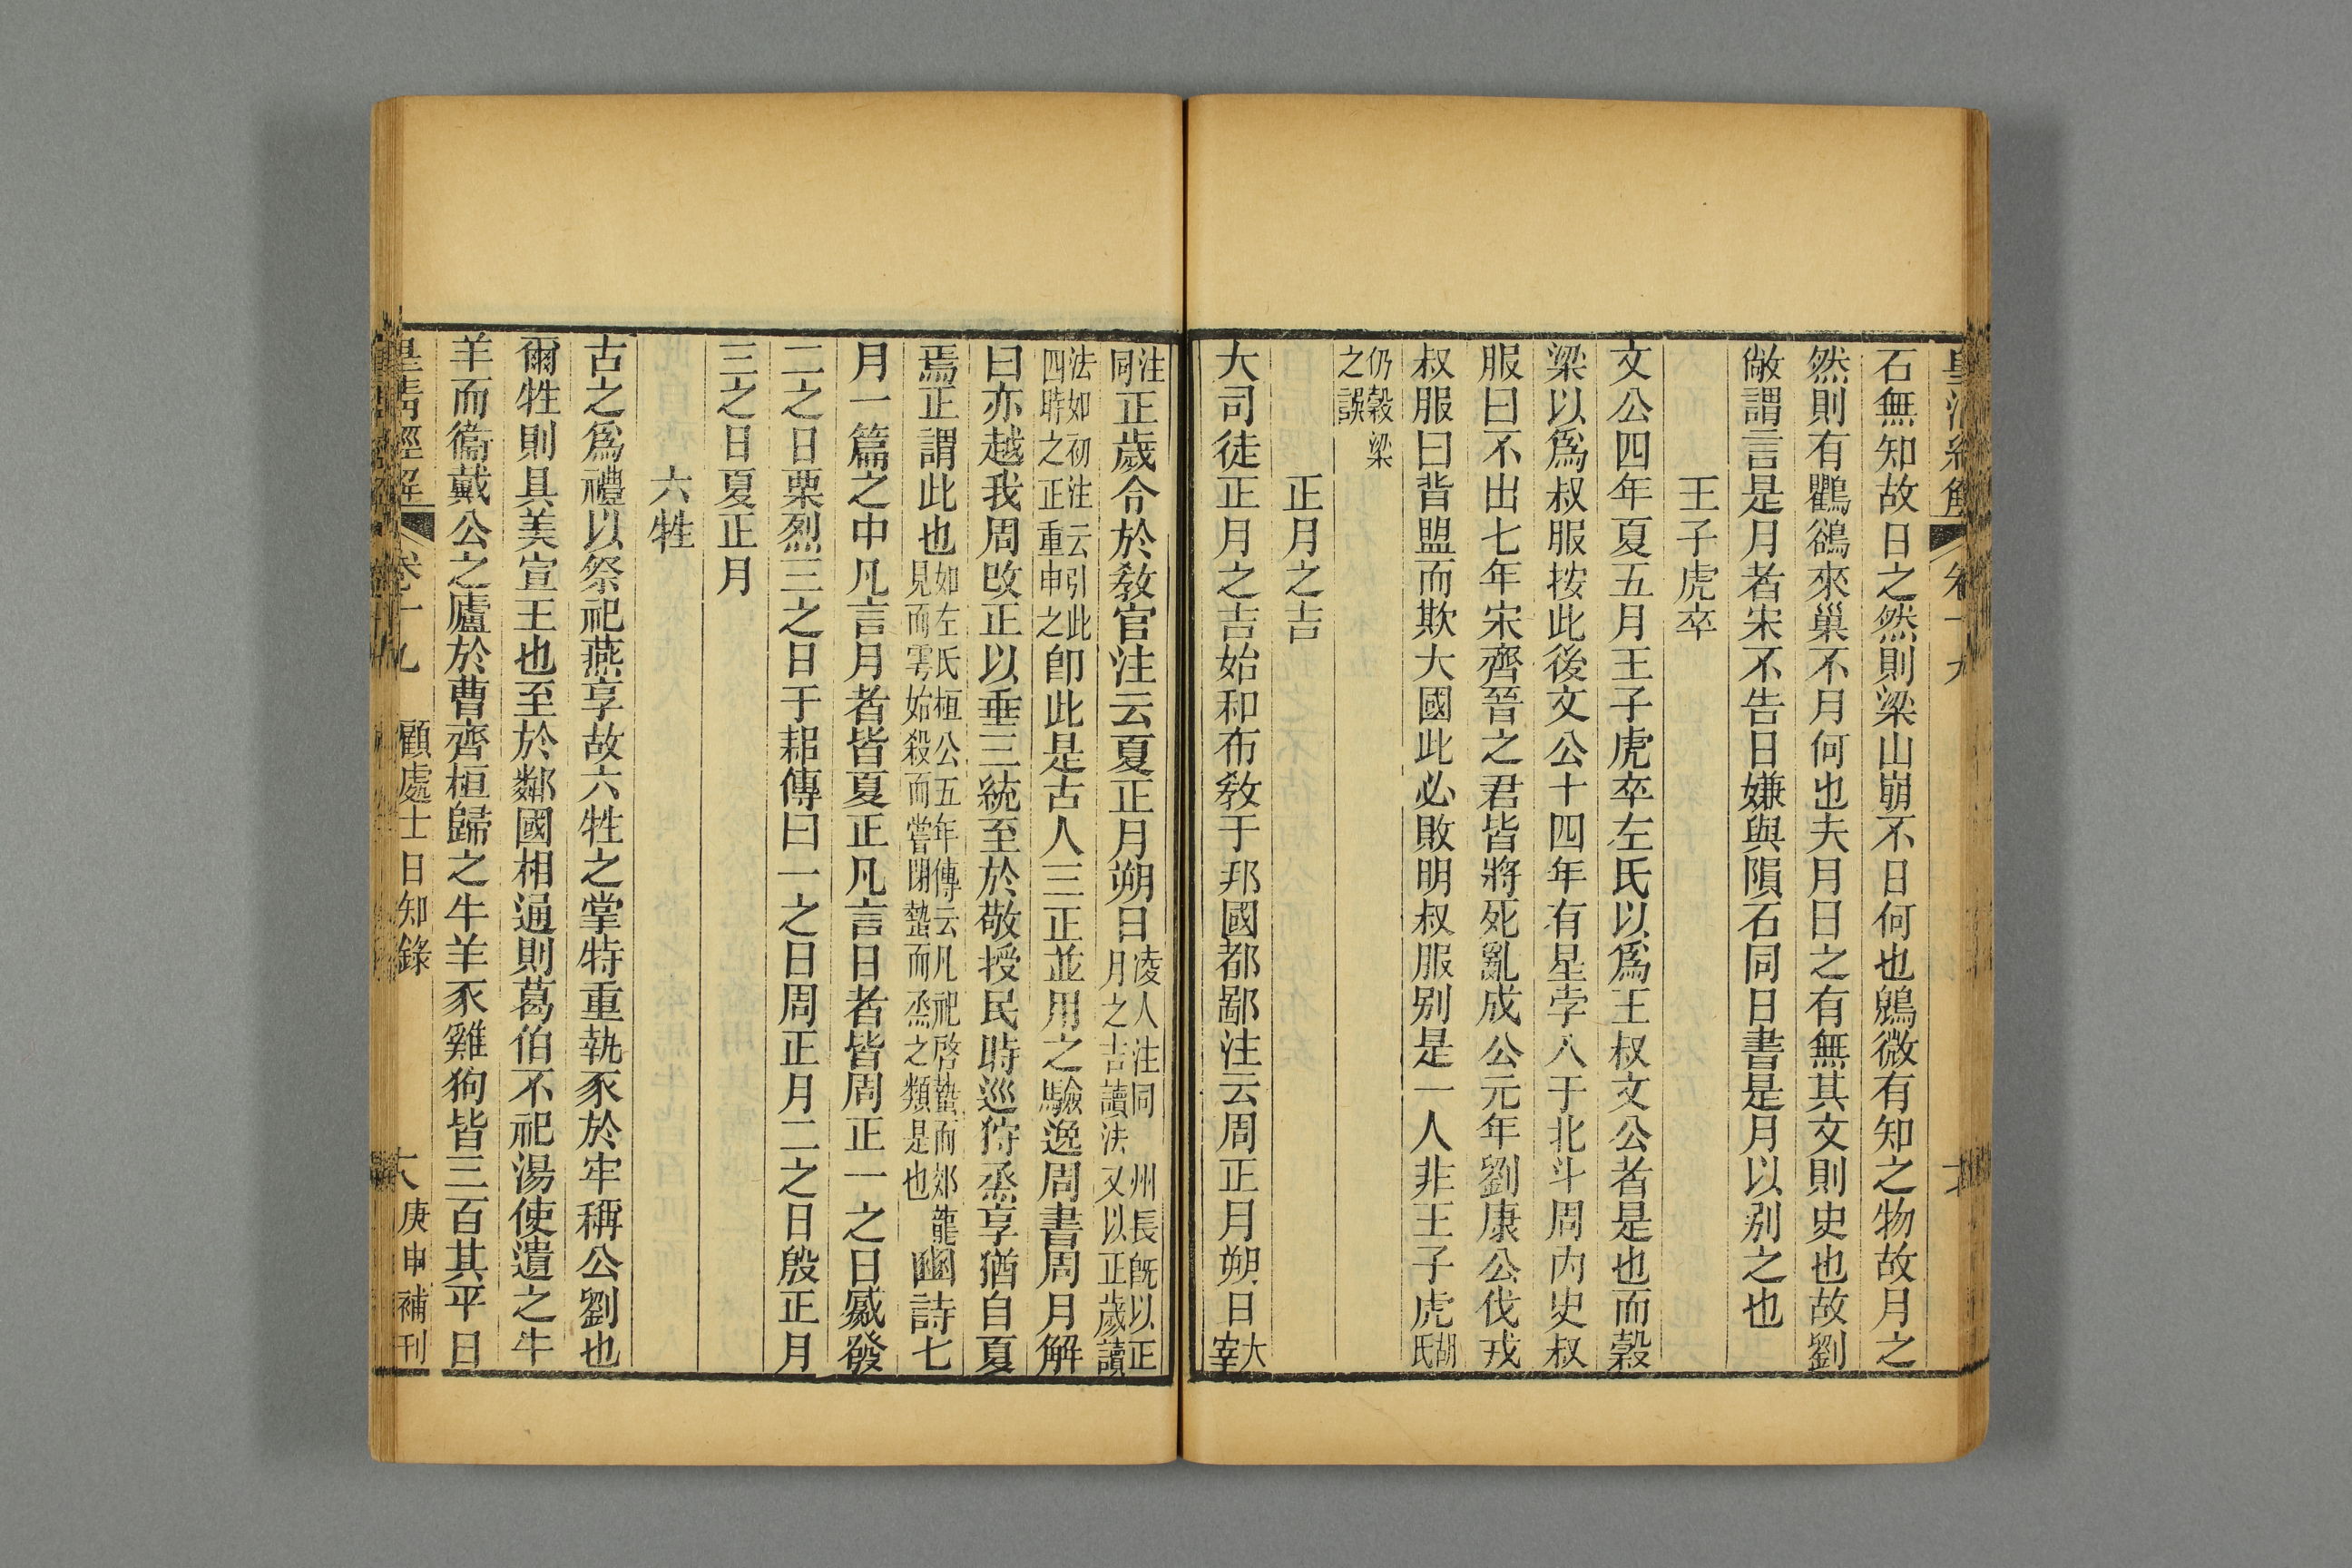 石無知故日之然則梁山崩不日何也鶂微有知之物故月之
然則有鸜鵒來巢不月何也夫月日之有無其文則史也故劉
敞謂言是月者宋不告日嫌與隕石同日書是月以別之也
王子虎卒
文公四年夏五月王子虎卒左氏以爲王叔文公者是也而穀
梁以爲叔服按此後文公十四年有星孛入于北斗周內史叔
服曰不出七年宋齊晉之君皆將死亂成公元年劉康公伐戎
叔服曰背盟而欺大國此必敗明叔服別是一人非王子虎胡氏
仍穀梁
之誤
正月之吉
大司徒正月之吉始和布敎于邦國都鄙注云周正月朔日大宰
注同正歲令於敎官注云夏正月朔日凌人注同 州長旣以正月之吉讀法又以正歲讀
法如初注云引此四時之正重申之卽此是古人三正並用之驗逸周書周月解
曰亦越我周改正以垂三統至於敬授民時巡狩烝享猶自夏
焉正謂此也如左氏桓公五年傳云凡祀啓蟄而郊龍見而雩始殺而嘗閉蟄而烝之類是也豳詩七
月一篇之中凡言月者皆夏正凡言日者皆周正一之日觱發
二之日栗烈三之日于耜傳曰一之日周正月二之日殷正月
三之日夏正月
六牲
古之爲禮以祭祀燕享故六牲之掌特重執豕於牢稱公劉也
爾牲則具美宣王也至於鄰國相通則葛伯不祀湯使遺之牛
羊而衞戴公之廬於曹齊桓歸之牛羊豕雞狗皆三百其平日
皇淸經解 卷十九 顧處士日知錄 大 庚申補刊